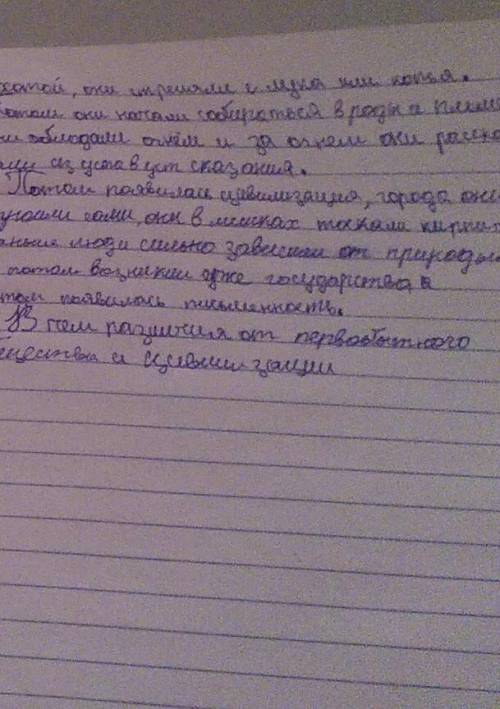 охотой, они стреляли с лука или копья.
потом они начали собираться в роды и плем
ни обладали огнём и за огнем они расска
из уст в уст сказания.
Потом появилась цивилизация, города они
сами, они в мешках таскали кирпи
раньше люди сильно зависели от природы
потом возникли уже государства и
том появилась письменность.
В чем различия от первобытного
бщества и цивилизации